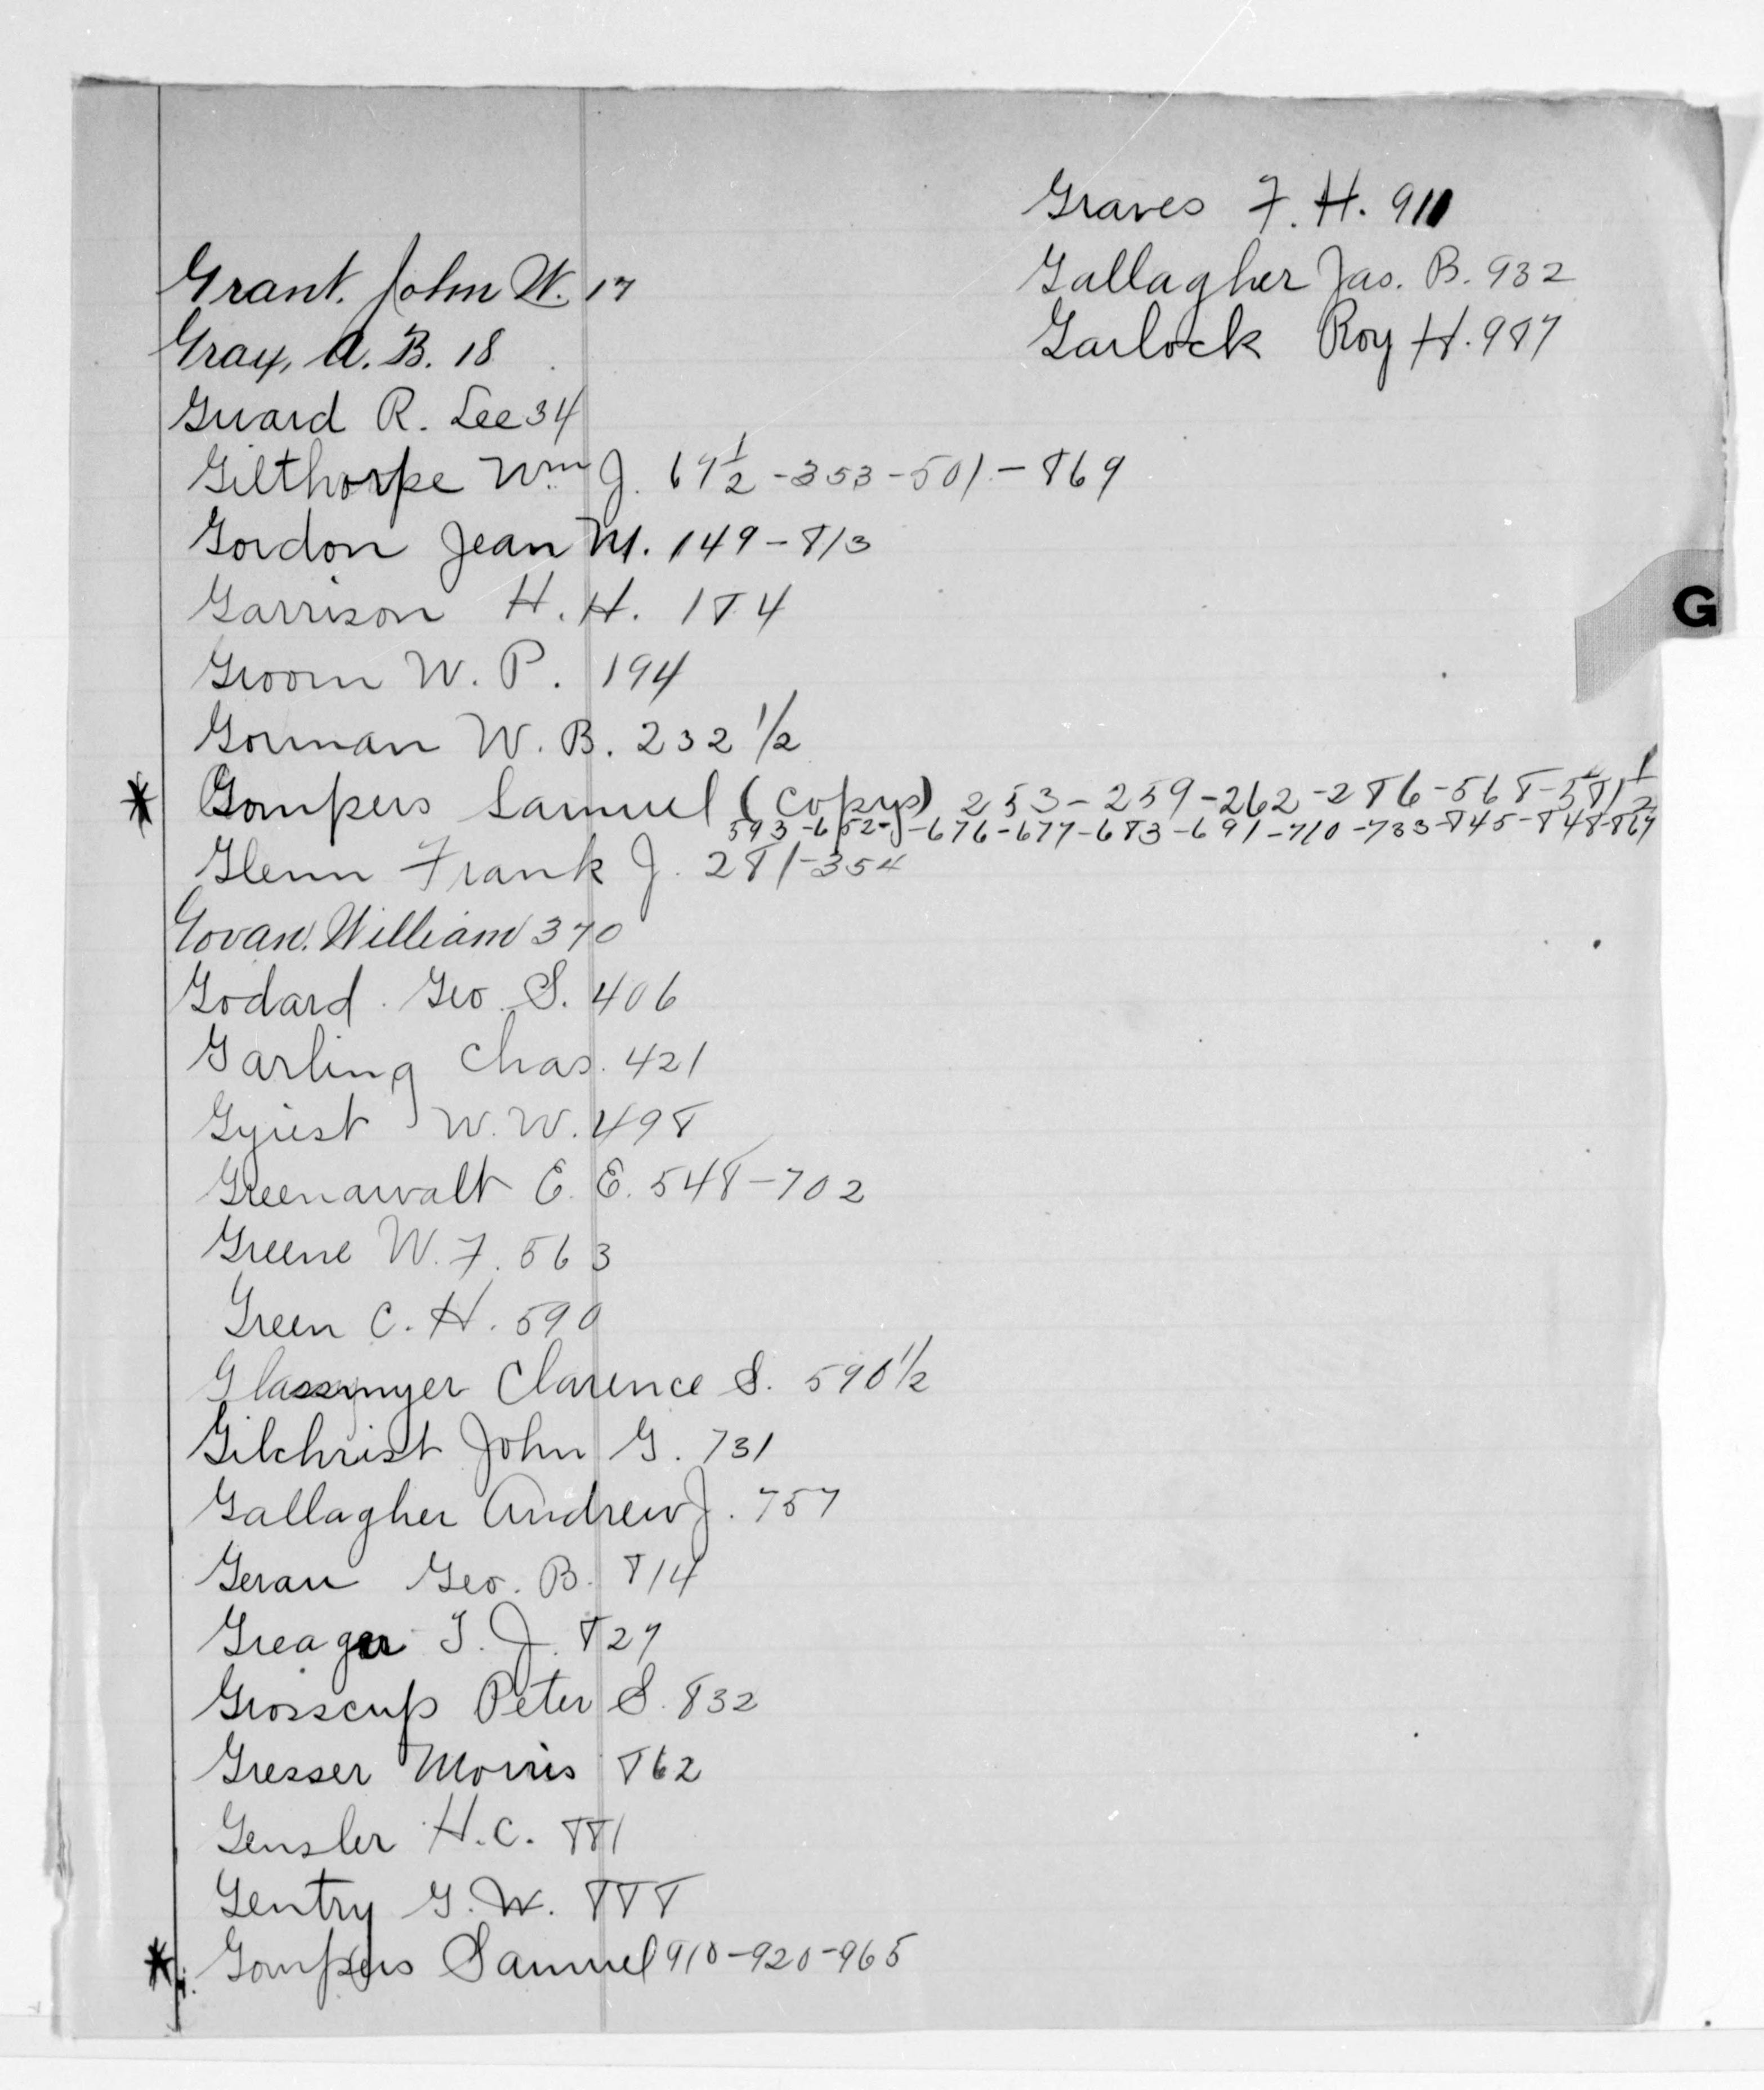 Graves F. H. 911
Gallagher Jas. B. 932
Garlock Roy H. 987
Grant. John W. 17
Gray, A. B. 18
Guard R. Lee 34
Gilthorpe Wm J. 67 1/2 - 353 - 501 - 869
Gordon Jean M. 149 - 813
Garrison H. H. 184
G
Groom W. P. 194
Gorman W. B. 232 1/2
* Gompers Samuel (Copys) 253 - 259 - 262 - 286 - 568 - 581 1/2
593 - 652 - 676 - 677 - 683 - 691 - 710 - 733 - 845 - 848 - 867
Glenn Frank J. 281 - 354
Govan. William 370
Godard Geo. S. 406
Garling Chas. 421
Gyiest W. W. 498
Greenawalt E. E. 548 - 702
Greene W. F. 563
Green C. H. 590
Glassmyer Clarence S. 590 1/2
Gilchrist John G. 731
Gallagher Andrew J. 757
Geran Geo. B. 814
Greager T. J. 827
Grosscup Peter S. 832
Gresser Morris 862
Gensler H. C. 881
Gentry G. W. 888
* Gompers Samuel 910 - 920 - 965